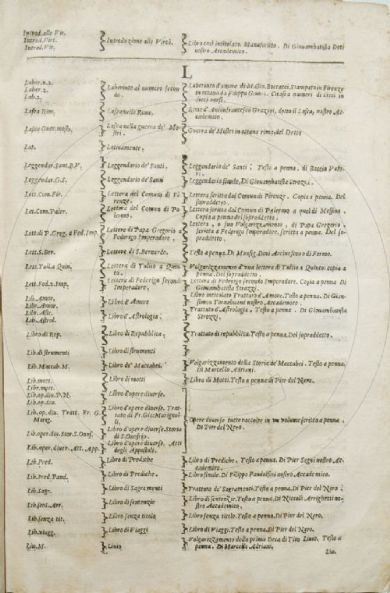 Introd. alle Vir.
Introd. Virt.
Introd. Vir.
Introduzione alle Virtù.
Libro così intitolato. Manuscritto. Di Giovambatista Deti
nostro Accademico.
L
Laber. n. 2.
Laber. 2.
Lab. 2.
Laberinto al numero secon-
do.
Laberinto d'amore di
Stampato in Firenze
in ottavo da Filippo Giunti.
Lasca Rim.
Lasca nelle Rime.
Rime d'Antonfrancesco Grazzini, detto il Lasca, nostro Ac-
cademico.
Lasca Guer. mostr.
Lasca nella guerra de' Mo-
stri.
Guerra de' Mostri in ottava rima del Detto
Lat.
Latinamente.
Leggendar. Sant. B. V.
Leggendario de' Santi.
Leggendario de' Santi. Testo a penna, di Baccio Valo-
ri.
Leggendar. G. S.
Leggendario de' Santi
Leggendario simile, Di Giovambatista Strozzi.
Lett. Com. Fir.
Lettera del Comune di Fi-
renze.
Lettera scritta dal Comun di Firenze. Copia a penna. Del
sopraddetto.
Lett. Com. Paler.
Lettera del Comune di Pa-
lermo.
Lettera scritta dal Comun di Palermo a quel di Messina.
Copia a penna del sopraddetto.
Lett. di P. Greg. a Fed. Imp.
Lettera di Papa Gregorio a
Federigo Imperadore.
Lettera, o suo Volgarizzamento, di Papa Gregorio,
scritta a Federigo Imperadore, scritta a penna. Del so-
praddetto.
Lett. S. Ber.
Lettera di S. Bernardo.
Testo a penna. Di Monsig. Doni Arcivescovo di Fermo.
Lett. Tull. a Quin.
Lettera di Tullio a Quin-
to.
Volgarizzamento d'una lettera di Tullio a Quinto, copia a
penna. Del sopraddetto.
Lett. Fed. 2. Imp.
Lettera di Federigo secondo
Imperadore.
Lettera di Federigo secondo Imperadore. Copia a penna Di
Giovambatista Strozzi.
Lib. Amor.
Lib. Amor.
Libro d'Amore
Libro intitolato Trattato d'Amore. Testo a penna. Di Gian-
simon Tornabuoni nostro Accademico.
Lib. Astrol.
Libro d'Astrologia.
Trattato d'Astrologia, Testo a penna. Di Giovambatista
Strozzi.
Lib. di Rep.
Libro di Repubblica.
Trattato di repubblica. Testo a penna. Del sopraddetto.
Lib. di strumenti
Libro di strumenti
Lib. Maccab. M.
Libro de' Maccabei.
Volgarizzamento della Storia de' Maccabei. Testo a penna.
Di Marcello Adriani.
Lib. mott.
Libro di motti
Libro di Motti. Testo a penna di Pier del Nero.
Lib. op. div. P. N.
Lib. op. div.
Libro d'opere diverse.
Lib. op. div. Tratt. Fr. G.
Marig.
Libro d'opere diverse. Trat-
tato di Fr. Gio: Marignol-
li.
Opere diverse tutte raccolte in un volume scritto a penna.
Di Pier del Nero.
Lib. oper. div. Stor. S. Onof.
Libro d'opere diverse. Storia
di S. Onofrio.
Lib. oper. diver. Att. App.
Libro d'opere diverse. Atti
degli Appostoli.
Lib. Pred.
Libro di Prediche
Libro di Prediche. Testo a penna. Di Pier Segni nostro Ac-
cademico.
Lib. Pred. Pand.
Libro di Prediche.
Libro simile. Di Filippo Pandolfini nostro Accademico.
Lib. Sagr.
Libro di Sagramenti
Trattato de' Sagramenti. Testo a penna, Di Pier del Nero.
Lib. sent. Arr.
Libro di sentenzie
Libro di sentenzie. Testo a penna, Di Niccolò Arrighetti no-
stro Accademico.
Lib. senza tit.
Libro senza titolo
Libro senza titolo. Testo a penna. Di Pier del Nero.
Lib. viagg.
Libro di Viaggi
Libro di Viaggi. Testo a penna, Di Pier del Nero.
Liv. M.
Livio
Volgarizzamento della prima Deca di Tito Livio. Testo a
penna. Di Marcello Adriani.
Liv.